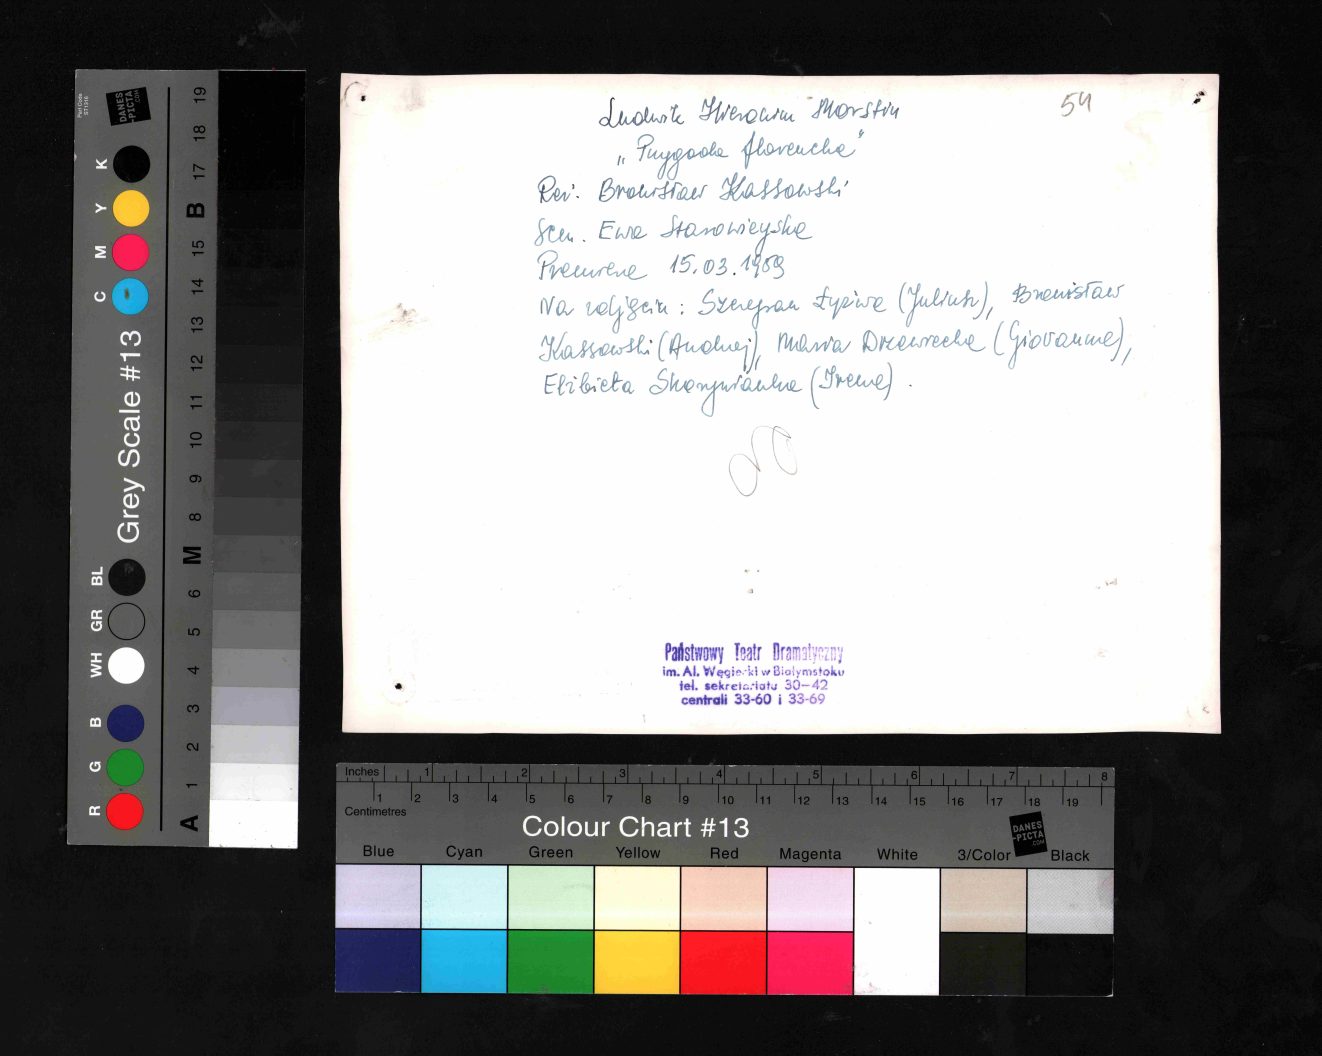 Ludwik Hieronim Morstin
„Przygoda florencka"
Reż. Bronisław Kassowski
Scen. Ewa Starowieyska
Premiera 15.03.1959
Na zdjęciu: Szczepan Łyżwa (Juliusz), Bronisław
Kassowski (Andrzej), Maria Drzewiecka (Giovanna),
Elżbieta Skarżanka (Irena).
54
Państwowy Teatr Dramatyczny
im. Al. Węgierki w Białymstoku
tel. sekretariatu 30-42
centrali 33-60 i 33-69
Part Code
ST1316
DANES
-PICTA
.COM
Grey Scale #13
R G B WH GR BL C M Y K
A 1 2 3 4 5 6 M 8 9 10 11 12 13 14 15 B 17 18 19
Inches 1 2 3 4 5 6 7 8
1 2 3 4 5 6 7 8 9 10 11 12 13 14 15 16 17 18 19
Centimetres
Colour Chart #13
DANES
-PICTA
.COM
Blue Cyan Green Yellow Red Magenta White 3/Color Black